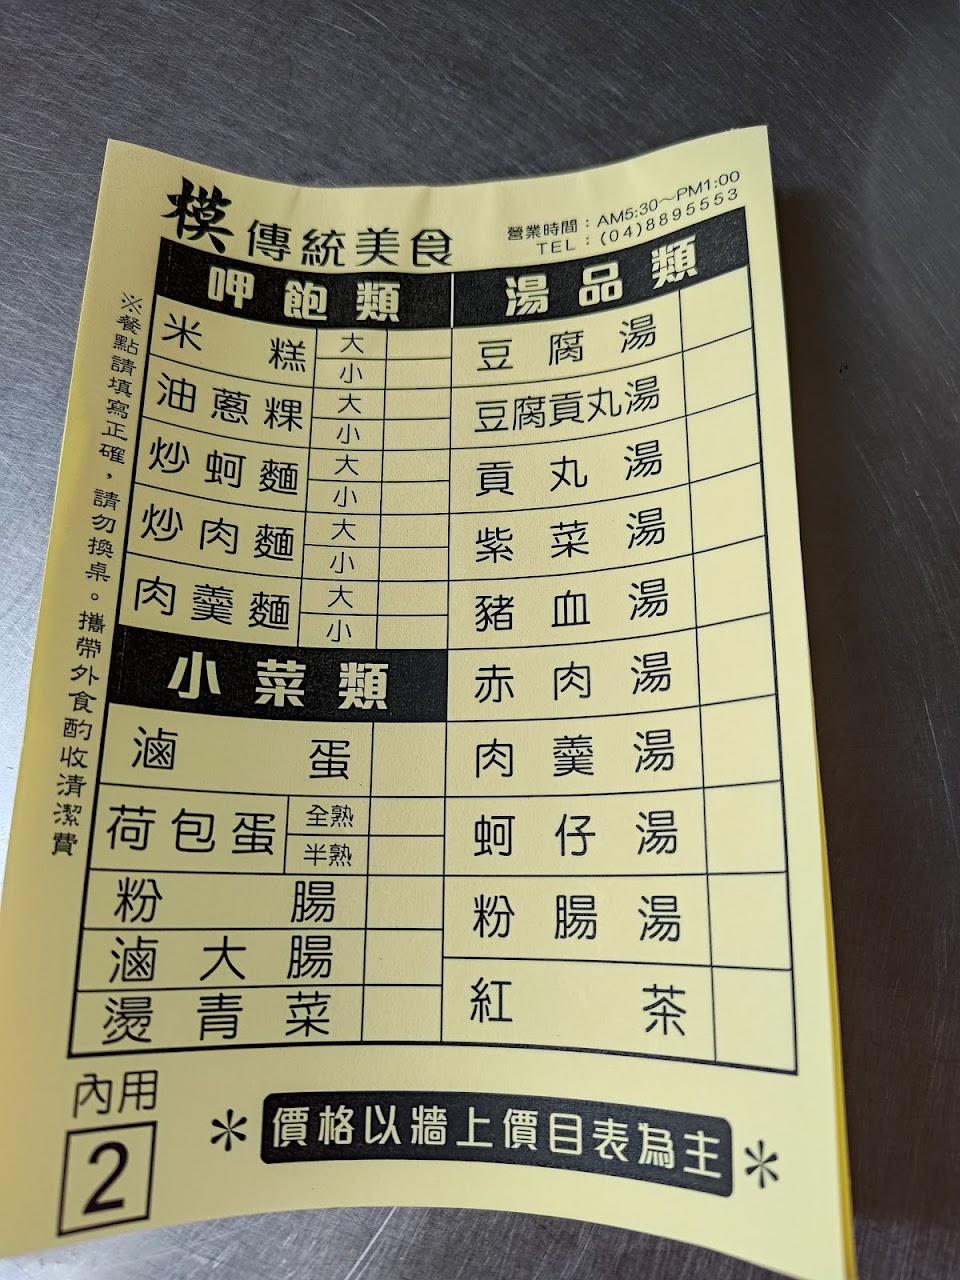 模 傳統美食
營業時間：AM5:30～PM1:00
TEL：(04)8895553
呷飽類
米糕 大 小
油蔥粿 大 小
炒蚵麵 大 小
炒肉麵 大 小
肉羹麵 大 小
小菜類
滷蛋
荷包蛋 全熟 半熟
粉腸
滷大腸
燙青菜
湯品類
豆腐湯
豆腐貢丸湯
貢丸湯
紫菜湯
豬血湯
赤肉湯
肉羹湯
蚵仔湯
粉腸湯
紅茶
※餐點請填寫正確，請勿換桌。攜帶外食酌收清潔費
內用
2
＊價格以牆上價目表為主＊